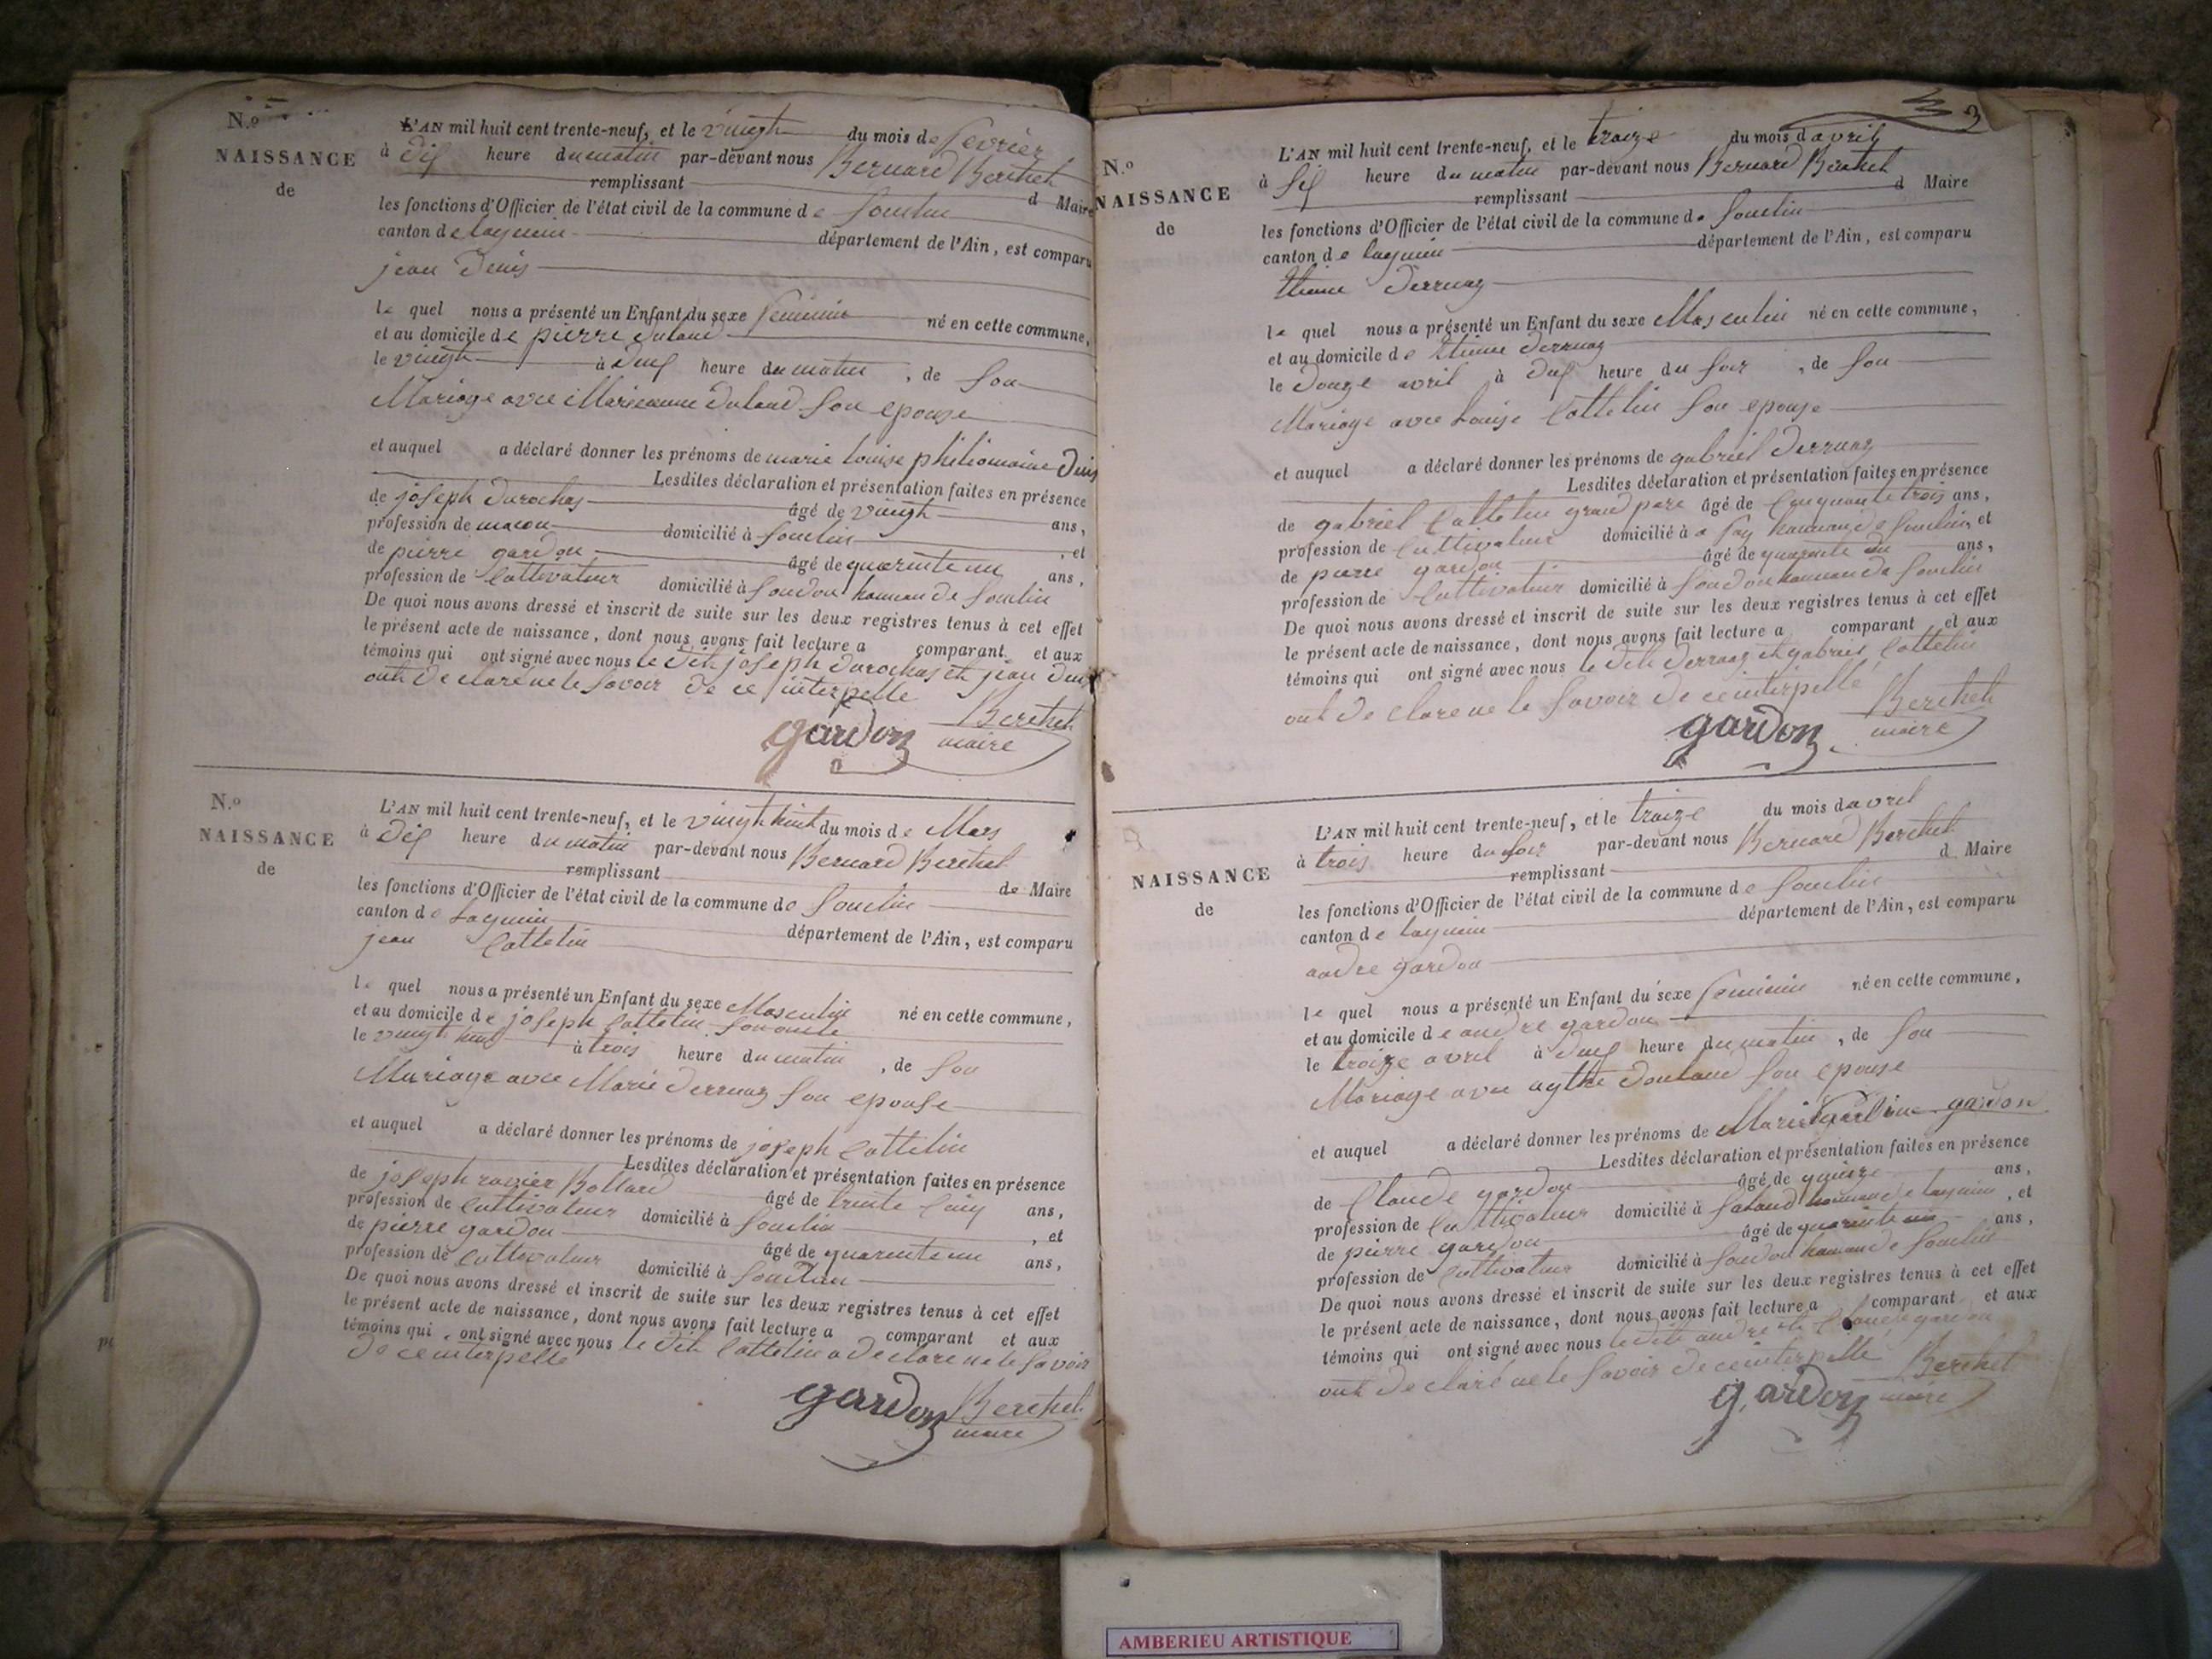 N.o
NAISSANCE
de
L'AN mil huit cent trente-neuf, et le vingt du mois de fevrier
à dix heure du matin par-devant nous Bernard Berthet
remplissant d Maire
les fonctions d'Officier de l'état civil de la commune de Souclin
canton de lagnieu département de l'Ain, est comparu
jean Denis
le quel nous a présenté un Enfant du sexe feminin né en cette commune,
et au domicile de pierre dulaud
le vingt à deux heure du matin, de son
Mariage avec Marieanne dulaud son epouse
et auquel a déclaré donner les prénoms de marie louise philiomaine Denis
Lesdites déclaration et présentation faites en présence
de joseph durochas âgé de vingt ans,
profession de macon domicilié à souclin, et
de pierre gardon âgé de quarente un ans,
profession de Cultivateur domicilié à soudon hameau de souclin
De quoi nous avons dressé et inscrit de suite sur les deux registres tenus à cet effet
le présent acte de naissance, dont nous avons fait lecture a comparant et aux
témoins qui ont signé avec nous le dit joseph durochas et jean denis
ont declaré ne le savoir de ce interpellé
gardon Berthet
maire
N.o
NAISSANCE
de
L'AN mil huit cent trente-neuf, et le vingt huit du mois de Mars
à dix heure du matin par-devant nous Bernard Berthet
remplissant de Maire
les fonctions d'Officier de l'état civil de la commune de Souclin
canton de Lagnieu département de l'Ain, est comparu
jean Cottelin
le quel nous a présenté un Enfant du sexe Masculin né en cette commune,
et au domicile de joseph Cottelin son oncle
le vingt huit à trois heure du matin, de son
Mariage avec Marie derruaz son epouse
et auquel a déclaré donner les prénoms de joseph Cottelin
Lesdites déclaration et présentation faites en présence
de joseph ravier Bollard âgé de trente Cinq ans,
profession de Cultivateur domicilié à souclin, et
de pierre gardon âgé de quarente un ans,
profession de Cultivateur domicilié à
De quoi nous avons dressé et inscrit de suite sur les deux registres tenus à cet effet
le présent acte de naissance, dont nous avons fait lecture a comparant et aux
témoins qui ont signé avec nous le dit Cottelin a declaré ne le savoir
de ce interpellé
gardon Berthet
maire
3
N.o
NAISSANCE
de
L'AN mil huit cent trente-neuf, et le traize du mois d avril
à six heure du matin par-devant nous Bernard Berthet
remplissant d Maire
les fonctions d'Officier de l'état civil de la commune de Souclin
canton de lagnieu département de l'Ain, est comparu
Etienne derruaz
le quel nous a présenté un Enfant du sexe Masculin né en cette commune,
et au domicile de Etienne derruaz
le douze avril à deux heure du soir, de son
Mariage avec Louise Cottelin son epouse
et auquel a déclaré donner les prénoms de gabriel derruaz
Lesdites déclaration et présentation faites en présence
de gabriel Cottelin grand pere âgé de Cinquante trois ans,
profession de Cultivateur domicilié à fay hameau de souclin, et
de pierre gardon âgé de quarente un ans,
profession de Cultivateur domicilié à soudon hameau de souclin
De quoi nous avons dressé et inscrit de suite sur les deux registres tenus à cet effet
le présent acte de naissance, dont nous avons fait lecture a comparant et aux
témoins qui ont signé avec nous le dit derruaz et gabriel Cottelin
ont declare ne le savoir de ce interpellé
gardon Berthet
maire
NAISSANCE
de
L'AN mil huit cent trente-neuf, et le traize du mois d avril
à trois heure du soir par-devant nous Bernard Berthet
remplissant d Maire
les fonctions d'Officier de l'état civil de la commune de Souclin
canton de lagnieu département de l'Ain, est comparu
andre gardon
le quel nous a présenté un Enfant du sexe feminin né en cette commune,
et au domicile de andre gardon
le traize avril à deux heure du matin, de son
Mariage avec agthe dulaud son epouse
et auquel a déclaré donner les prénoms de Marie gardon
Lesdites déclaration et présentation faites en présence
de Claude gardon âgé de ans,
profession de Cultivateur domicilié à hameau de lagnieu, et
de pierre gardon âgé de quarente un ans,
profession de Cultivateur domicilié à soudon hameau de souclin
De quoi nous avons dressé et inscrit de suite sur les deux registres tenus à cet effet
le présent acte de naissance, dont nous avons fait lecture a comparant et aux
témoins qui ont signé avec nous ledit andre et Claude gardon
ont declaré ne le savoir de ce interpellé
gardon Berthet
maire
AMBERIEU ARTISTIQUE